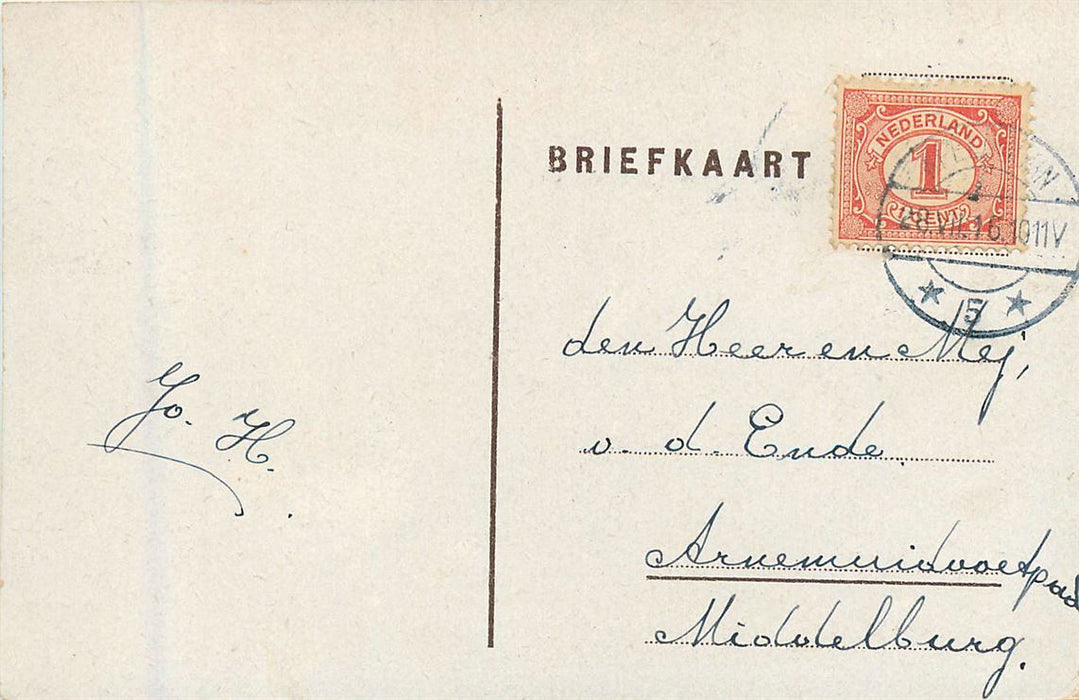 BRIEFKAART
NEDERLAND
1
1 CENT
28.VII.16.1011V
5
den Heer en Mej,
v. d. Ende.
Arnemuidvoetpad
Middelburg.
Jo. H.